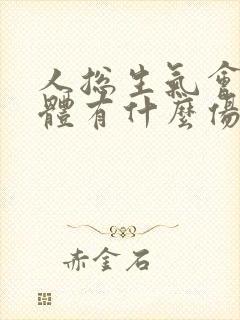 人总生氣會
體有什麼傷
赤金石